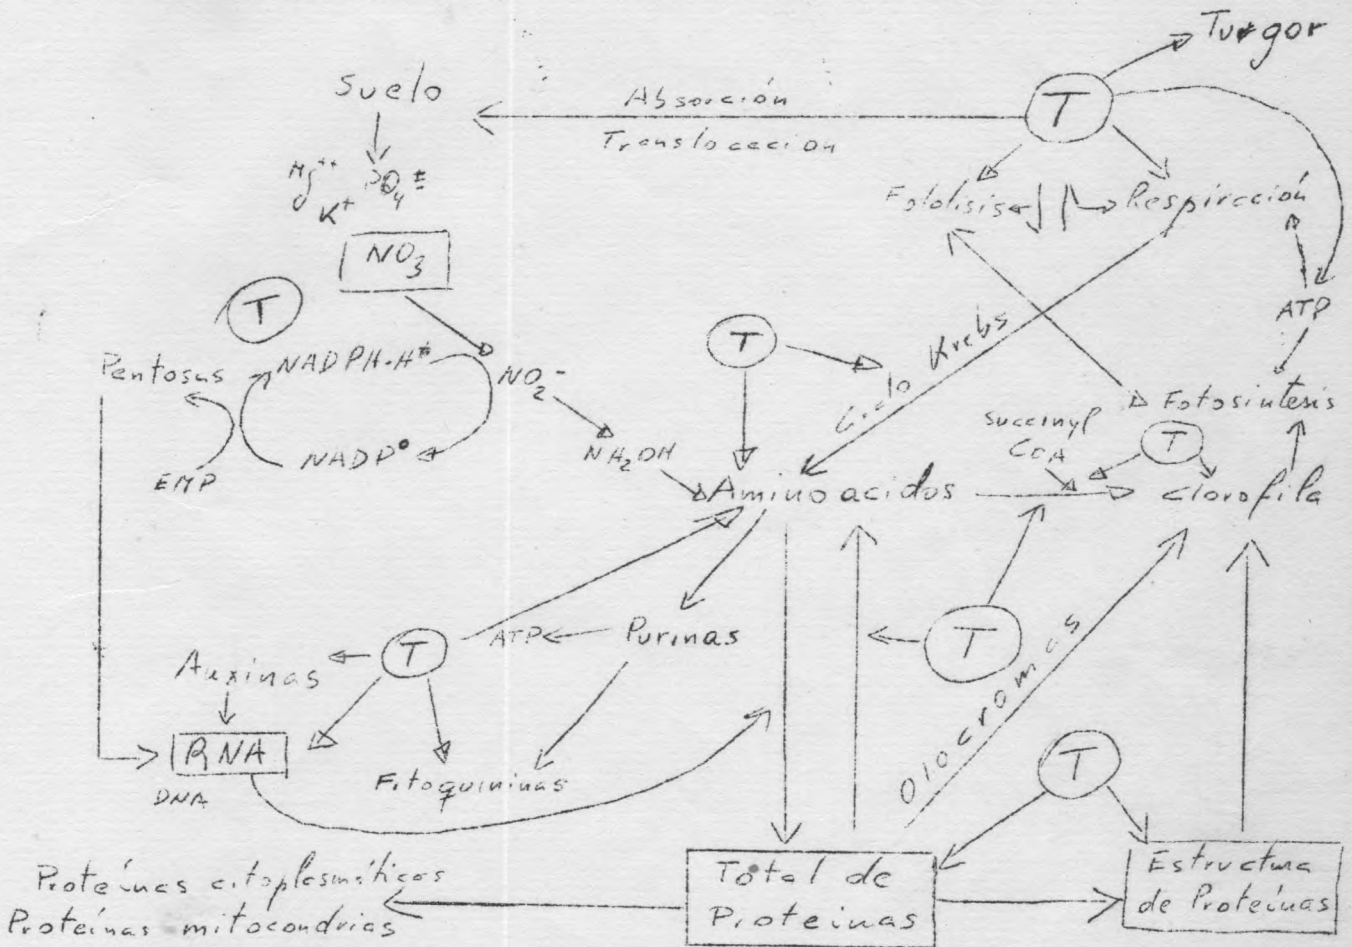 Turgor
T
Suelo
Absorción
Translocación
Mg++
PO4≡
K+
Fotolisis
Respiración
NO3
T
ATP
T
Pentosas
NADPH·H+
NO2-
Ciclo Krebs
Fotosintesis
Succinyl
CoA
T
NH2OH
EMP
NADP°
Aminoacidos
Clorofila
ATP
Purinas
T
T
Auxinas
Olocromas
RNA
DNA
Fitoquininas
T
Proteínas citoplasmáticas
Proteínas mitocondrias
Total de
Proteinas
Estructura
de Proteínas